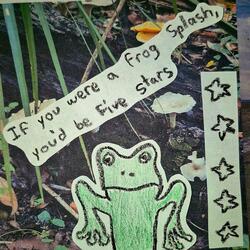 If you were a frog splash,
you'd be five stars